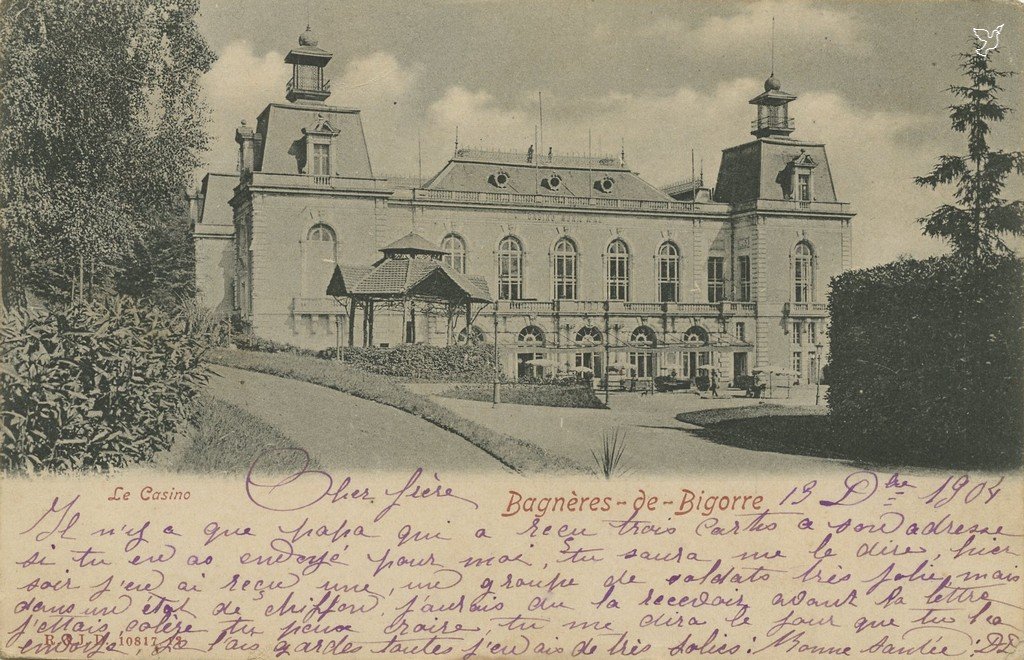 CASINO MUNICIPAL
Le Casino
Bagnères-de-Bigorre
Cher frère
13 Dbre 1904
Il n'y a que papa qui a reçu trois cartes a son adresse
si tu en as envoyé pour moi, tu saura me le dire, hier
soir j'en ai reçu une, un groupe de soldats très jolie, mais
dans un état de chiffon j'aurais du la recevoir avant la lettre
j'etais colère tu peux croire tu me dira le jour que tu l'a
envoyé, je lais gardes toutes j'en ais de très jolies. Bonne santée. D
R. G. J. D. 10817